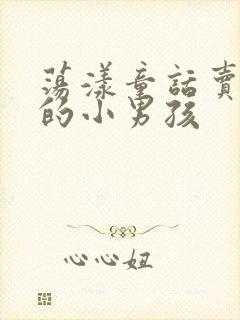 蕩漾童話賣
的小男孩
心心妞